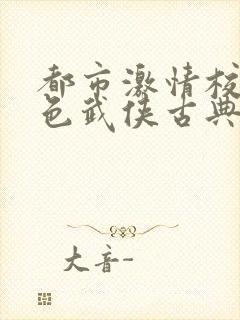 都市激情校
色武侠古典
大音-